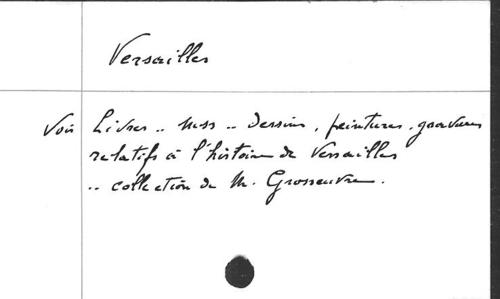 Versailles
Voir Livres .. mss .. dessins, peintures, gravures
relatifs à l'histoire de Versailles
.. collection de M. Grosseuvre.